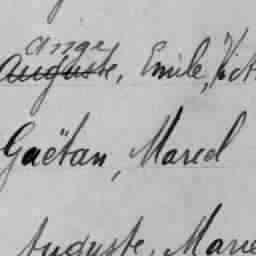 ange
Auguste, Emile, Vict
Gaëtan, Marcel
Auguste, Marie